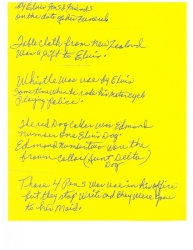 by Elvis Pas & friends
on the date of his funeral
Table cloth from New Zealand
Was a gift to Elvis.
Whistle was use by Elvis
Sometime when he rode his motorcycle
Playing Police.
The red Dog Collar won Edmond
number one Elvis Dog.
Edmond number two wore the
brown collar (Aunt Delta)
Dog
These 4 Pens was use in his office
but they stop write and they were gone
to his Maid.